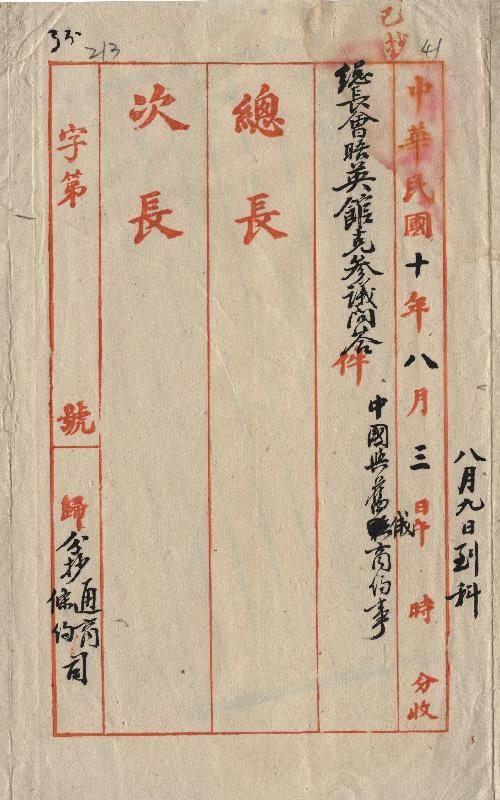 已抄
41
213
八月九日到科
中華民國十年八月三日午時分收
總長會晤英館克參議問答件
中國與舊俄商約事
總長
次長
字第號
歸全抄通商司
條約